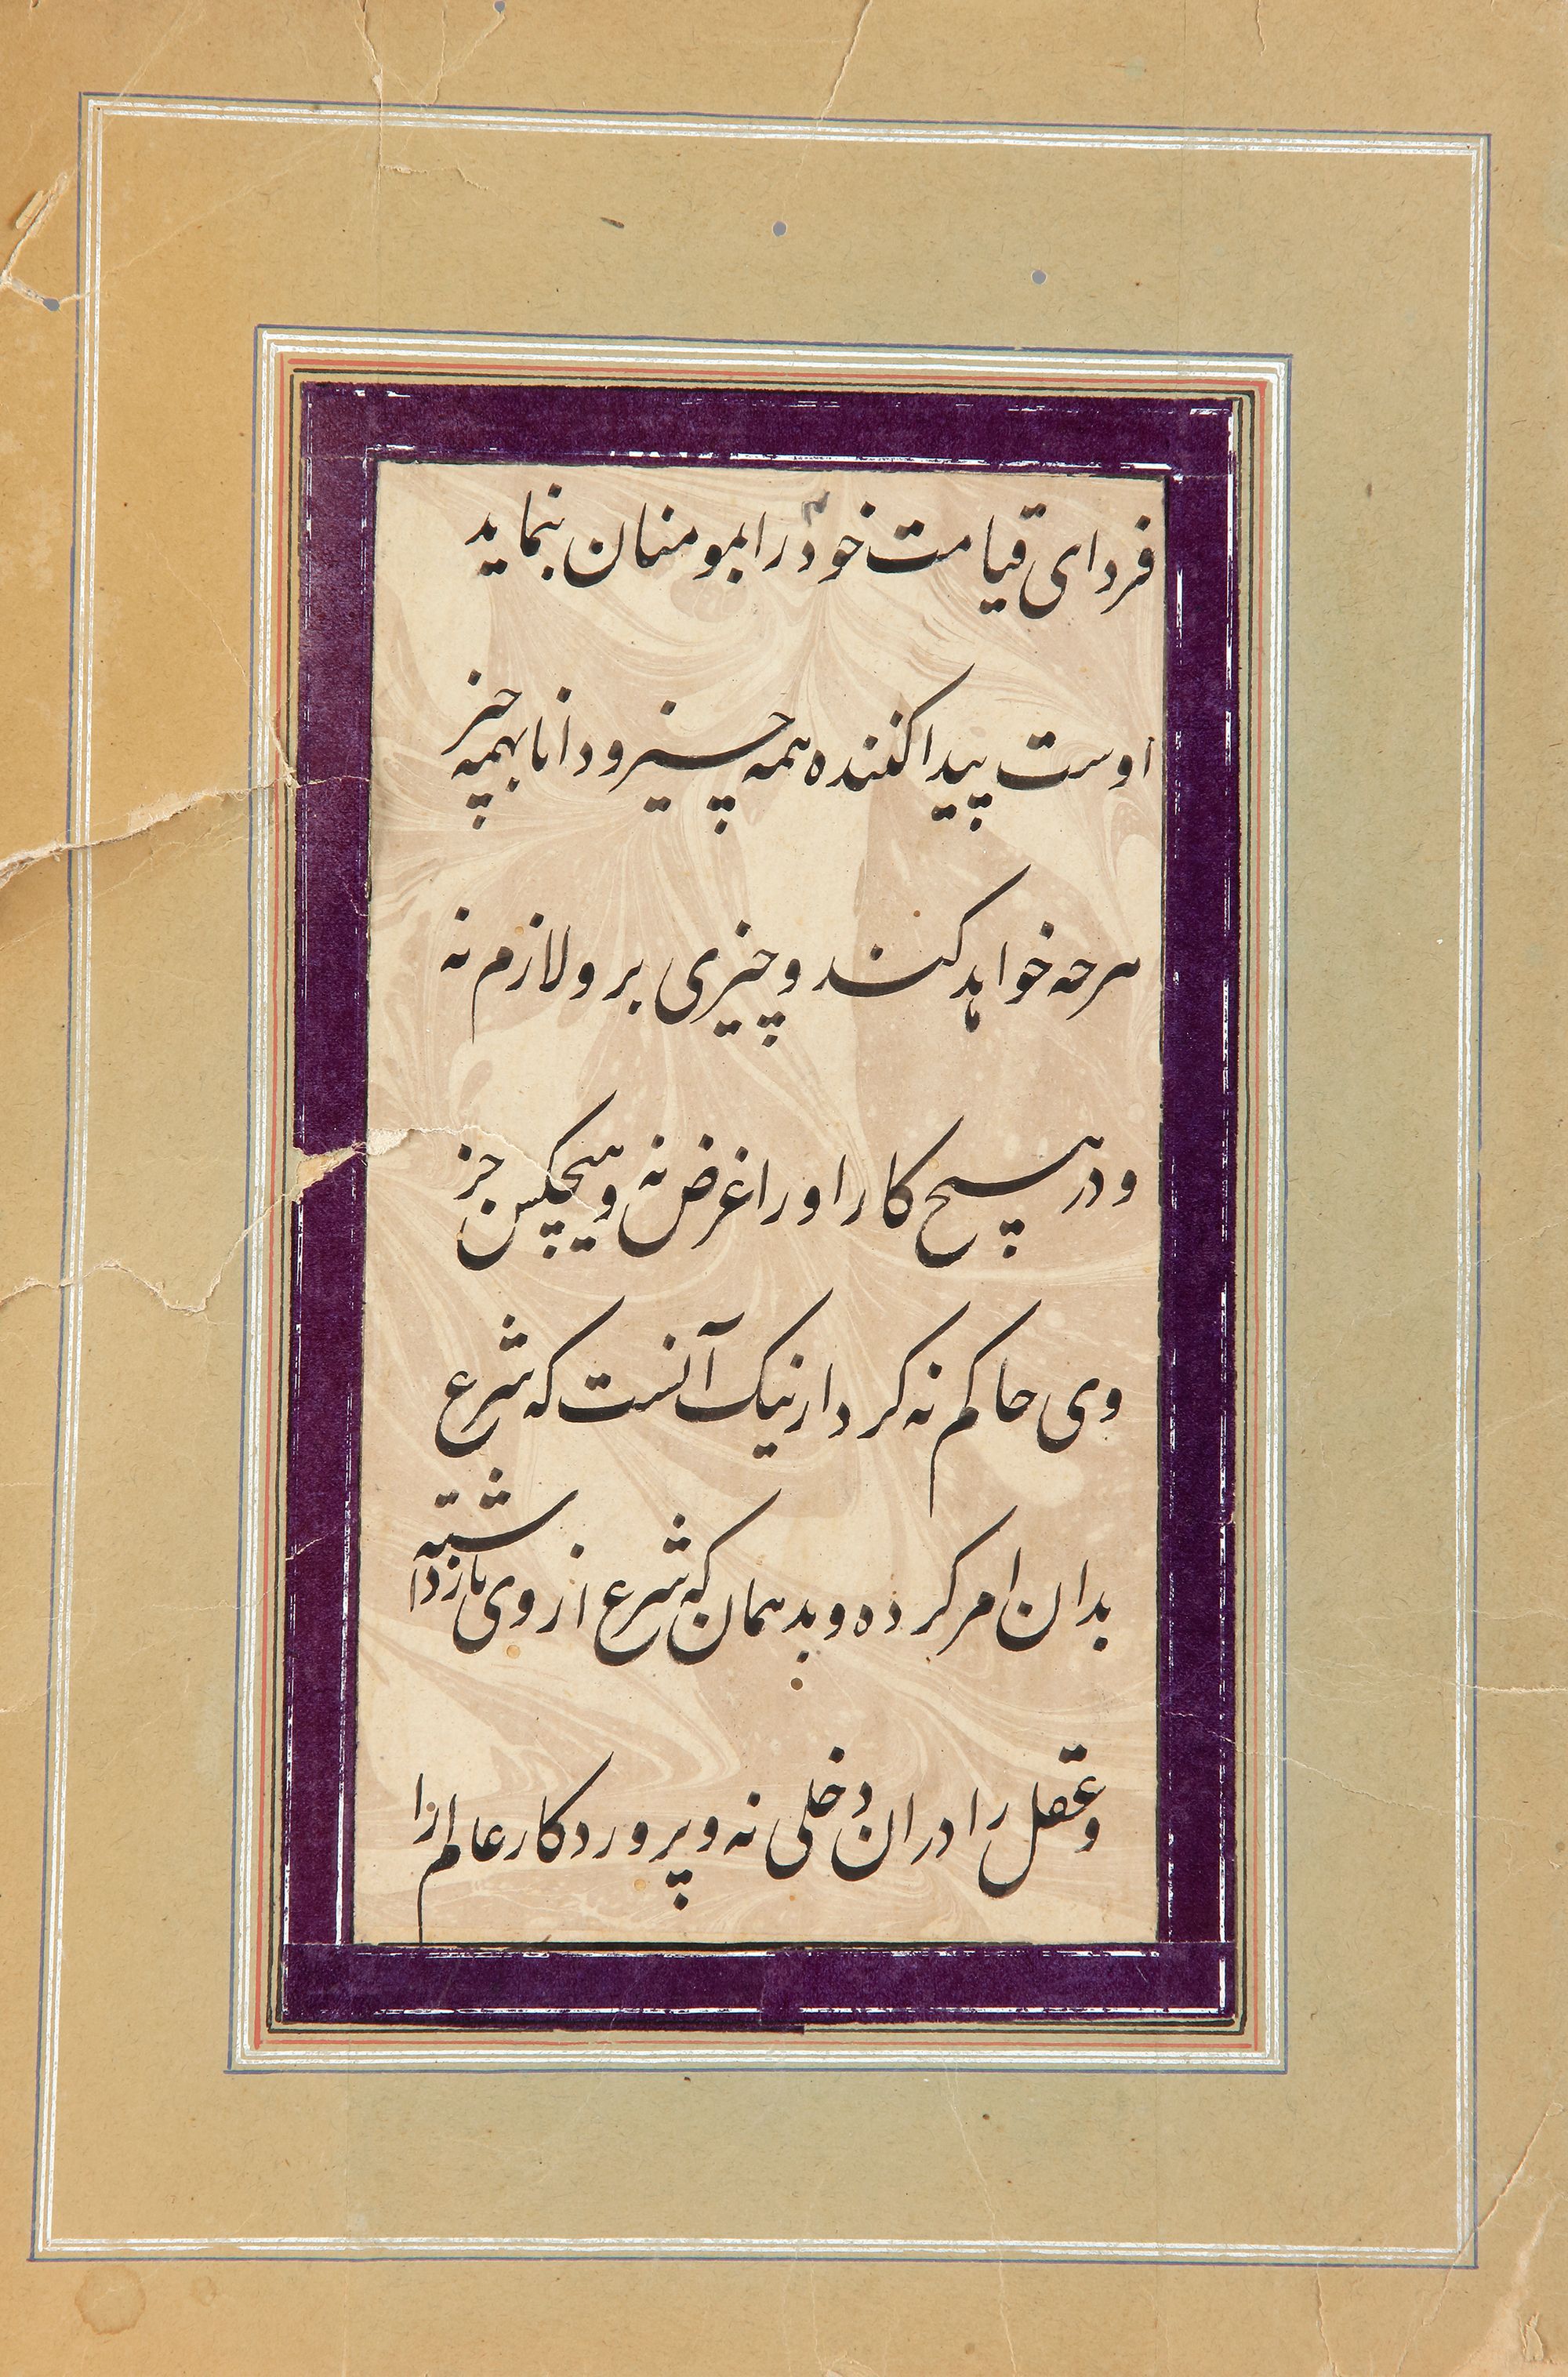 فردای قیامت خود را بمومنان بنماید
اوست پیدا کننده همه چیز و دانا بهمه چیز
هرچه خواهد کند و چیزی برو لازم نه
و در هیچ کار او را غرض نه و هیچکس جز
وی حاکم نه کردار نیک آنست که شرع
بدان امر کرده و بد همان که شرع از وی بازداشته
و عقل را در ان دخلی نه و پروردکار عالم را